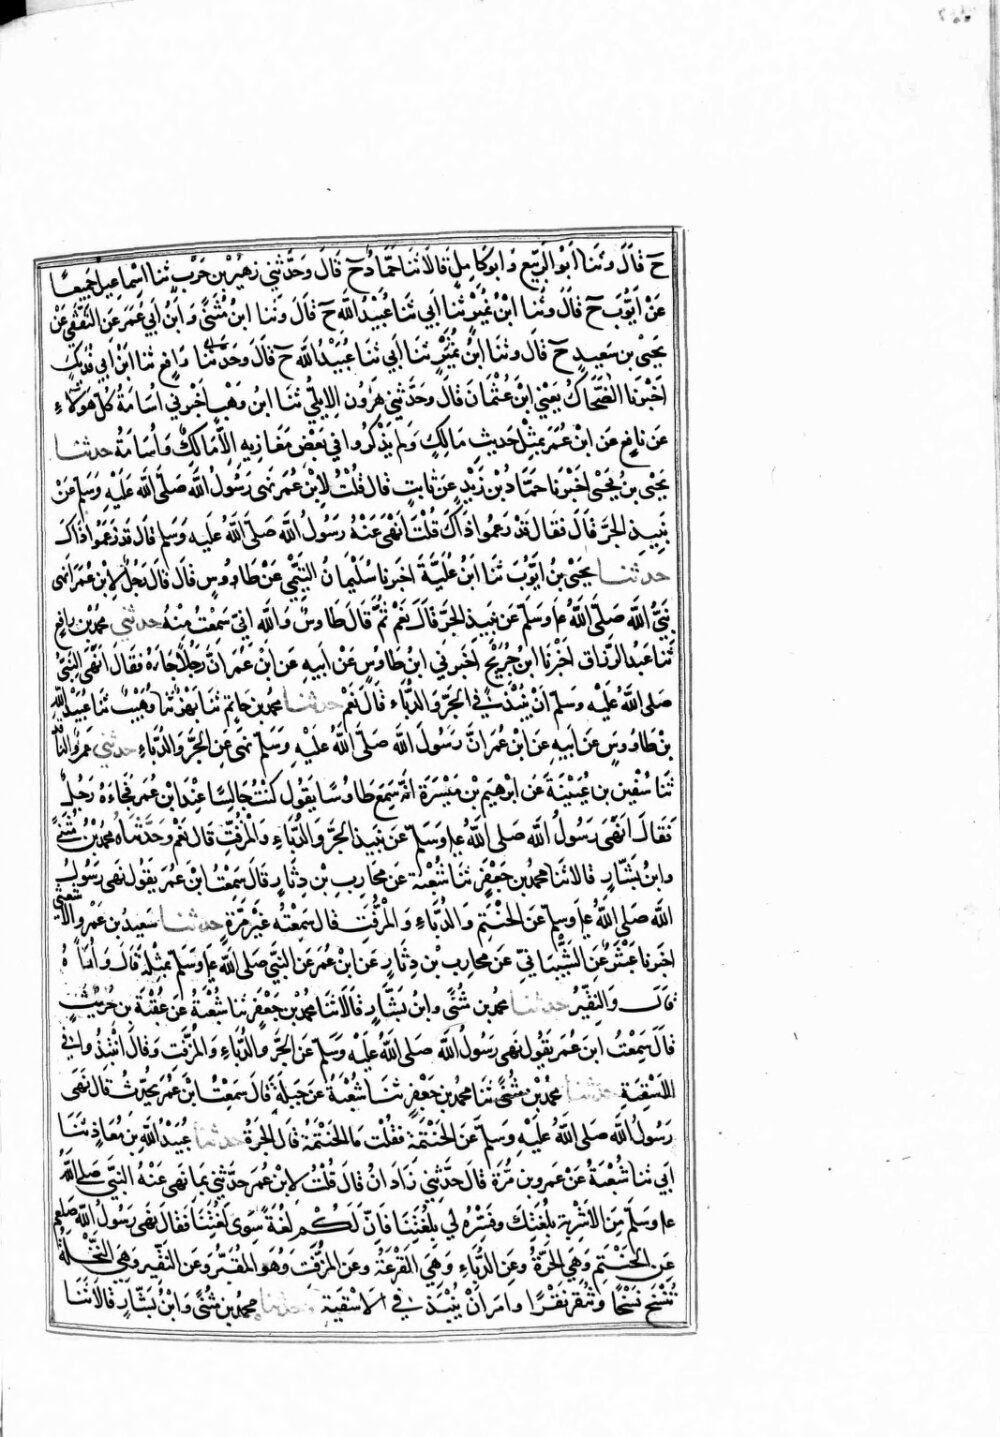 ح قال وثنا ابو الربيع وابو كامل قالا ثنا حماد ح قال وحدثني زهير بن حرب ثنا اسماعيل جميعا
عن ايوب ح قال وثنا ابن نمير ثنا ابي ثنا عبيد الله ح قال وثنا ابن مثنى وابن ابي عمر عن الثقفي عن
يحيى بن سعيد ح قال وثنا ابن نمير ثنا ابي ثنا عبيد الله ح قال وحدثنا رافع ثنا ابن ابي فديك
اخبرنا الضحاك يعني ابن عثمان قال وحدثني هرون الايلي ثنا ابن وهب اخبرني اسامة كل هؤلاء
عن نافع عن ابن عمر بمثل حديث مالك ولم يذكروا في بعض مغازيه الا مالك واسامة حدثنا
يحيى بن يحيى اخبرنا حماد بن زيد عن ثابت قال قلت لابن عمر نهى رسول الله صلى الله عليه وسلم عن
نبيذ الجر قال فقال قد زعموا ذاك قلت انهى عنه رسول الله صلى الله عليه وسلم قال قد زعموا ذاك
حدثنا يحيى بن ايوب ثنا ابن علية اخبرنا سليمان التيمي عن طاووس قال قال رجل لابن عمر انهى
نبي الله صلى الله ع وسلم عن نبيذ الجر قال نعم ثم قال طاوس والله اني سمعت منه حدثني محمد بن رافع
ثنا عبد الرزاق اخبرنا ابن جريج اخبرني ابن طاووس عن ابيه عن ابن عمر ان رجلا جاءه فقال انهى النبي
صلى الله عليه وسلم ان ينبذ في الجر والدباء قال نعم حدثنا محمد بن حاتم ثنا بهز ثنا وهيب ثنا عبيد الله
بن طاووس عن ابيه عن ابن عمر ان رسول الله صلى الله عليه وسلم نهى عن الجر والدباء حدثني عمرو الناقد
ثنا سفين بن عيينة عن ابرهيم بن ميسرة انه سمع طاوسا يقول كنت جالسا عند ابن عمر فجاءه رجل
فقال انهى رسول الله صلى الله ع وسلم عن نبيذ الجر والدباء والمزفت قال نعم وحدثناه محمد بن مثنى
وابن بشار قالا ثنا محمد بن جعفر ثنا شعبة عن محارب بن دثار قال سمعت ابن عمر يقول نهى رسول
الله صلى الله ع وسلم عن الحنتم والدباء والمزفت قال سمعته غير مرة حدثنا سعيد بن عمرو الاشعثي
اخبرنا عبثر عن الشيباني عن محارب بن دثار عن ابن عمر عن النبي صلى الله ع وسلم بمثله قال واراه
قال والنقير حدثنا محمد بن مثنى وابن بشار قالا ثنا محمد بن جعفر ثنا شعبة عن عقبة بن حريث
قال سمعت ابن عمر يقول نهى رسول الله صلى الله عليه وسلم عن الجر والدباء والمزفت وقال انتبذوا في
الاسقية حدثنا محمد بن مثنى ثنا محمد بن جعفر ثنا شعبة عن جبلة قال سمعت ابن عمر يحدث قال نهى
رسول الله صلى الله عليه وسلم عن الحنتمة فقلت ما الحنتمة قال الجرة حدثنا عبيد الله بن معاذ ثنا
ابي ثنا شعبة عن عمرو بن مرة قال حدثني زاذان قال قلت لابن عمر حدثني بما نهى عنه النبي صلى الله
ع وسلم من الاشربة بلغتك وفسره لي بلغتنا فان لكم لغة سوى لغتنا فقال نهى رسول الله صلعم
عن الحنتم وهي الجرة وعن الدباء وهي القرعة وعن المزفت وهو المقير وعن النقير وهي النخلة
تنسح نسحا وتنقر نقرا وامر ان ينبذ في الاسقية حدثنا محمد بن مثنى وابن بشار قالا ثنا